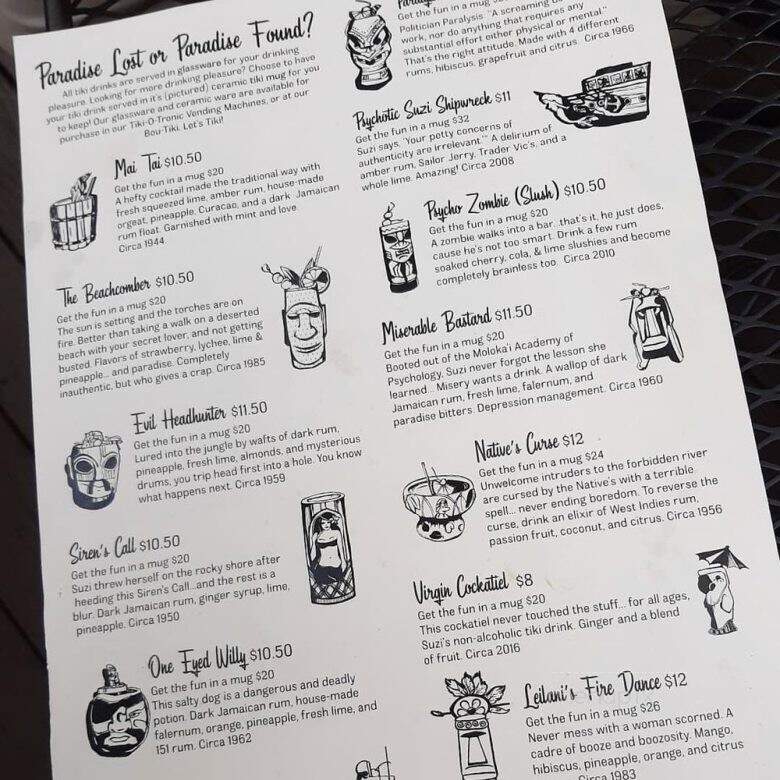 Paradise Lost or Paradise Found?
All tiki drinks are served in glassware for your drinking
pleasure. Looking for more drinking pleasure? Choose to have
your tiki drink served in it's (pictured) ceramic tiki mug for you
to keep! Our glassware and ceramic ware are available for
purchase in our Tiki-O-Tronic Vending Machines, or at our
Bou-Tiki. Let's Tiki!
Mai Tai $10.50
Get the fun in a mug $20
A hefty cocktail made the traditional way with
fresh squeezed lime, amber rum, house-made
orgeat, pineapple, Curacao, and a dark Jamaican
rum float. Garnished with mint and love.
Circa 1944
The Beachcomber $10.50
Get the fun in a mug $20
The sun is setting and the torches are on
fire. Better than taking a walk on a deserted
beach with your secret lover, and not getting
busted. Flavors of strawberry, lychee, lime &
pineapple... and paradise. Completely
inauthentic, but who gives a crap. Circa 1985
Evil Headhunter $11.50
Get the fun in a mug $20
Lured into the jungle by wafts of dark rum,
pineapple, fresh lime, almonds, and mysterious
drums, you trip head first into a hole. You know
what happens next. Circa 1959
Siren's Call $10.50
Get the fun in a mug $20
Suzi threw herself on the rocky shore after
heeding this Siren's Call...and the rest is a
blur. Dark Jamaican rum, ginger syrup, lime,
pineapple. Circa 1950
One Eyed Willy $10.50
Get the fun in a mug $20
This salty dog is a dangerous and deadly
potion. Dark Jamaican rum, house-made
falernum, orange, pineapple, fresh lime, and
151 rum. Circa 1962
Get the fun in a mug
Politician Paralysis. "A screaming
work, nor do anything that requires any
substantial effort either physical or mental."
That's the right attitude. Made with 4 different
rums, hibiscus, grapefruit and citrus. Circa 1966
Psychotic Suzi Shipwreck $11
Get the fun in a mug $32
Suzi says, "Your petty concerns of
authenticity are irrelevant." A delirium of
amber rum, Sailor Jerry, Trader Vic's, and a
whole lime. Amazing! Circa 2008
Psycho Zombie (Slush) $10.50
Get the fun in a mug $20
A zombie walks into a bar...that's it, he just does,
cause he's not too smart. Drink a few rum
soaked cherry, cola, & lime slushies and become
completely brainless too. Circa 2010
Miserable Bastard $11.50
Get the fun in a mug $20
Booted out of the Moloka'i Academy of
Psychology, Suzi never forgot the lesson she
learned... Misery wants a drink. A wallop of dark
Jamaican rum, fresh lime, falernum, and
paradise bitters. Depression management. Circa 1960
Native's Curse $12
Get the fun in a mug $24
Unwelcome intruders to the forbidden river
are cursed by the Native's with a terrible
spell... never ending boredom. To reverse the
curse, drink an elixir of West Indies rum,
passion fruit, coconut, and citrus. Circa 1956
Virgin Cockatiel $8
Get the fun in a mug $20
This cockatiel never touched the stuff... for all ages,
Suzi's non-alcoholic tiki drink. Ginger and a blend
of fruit. Circa 2016
Leilani's Fire Dance $12
Get the fun in a mug $26
Never mess with a woman scorned. A
cadre of booze and boozosity. Mango,
hibiscus, pineapple, orange, and citrus
Circa 1983